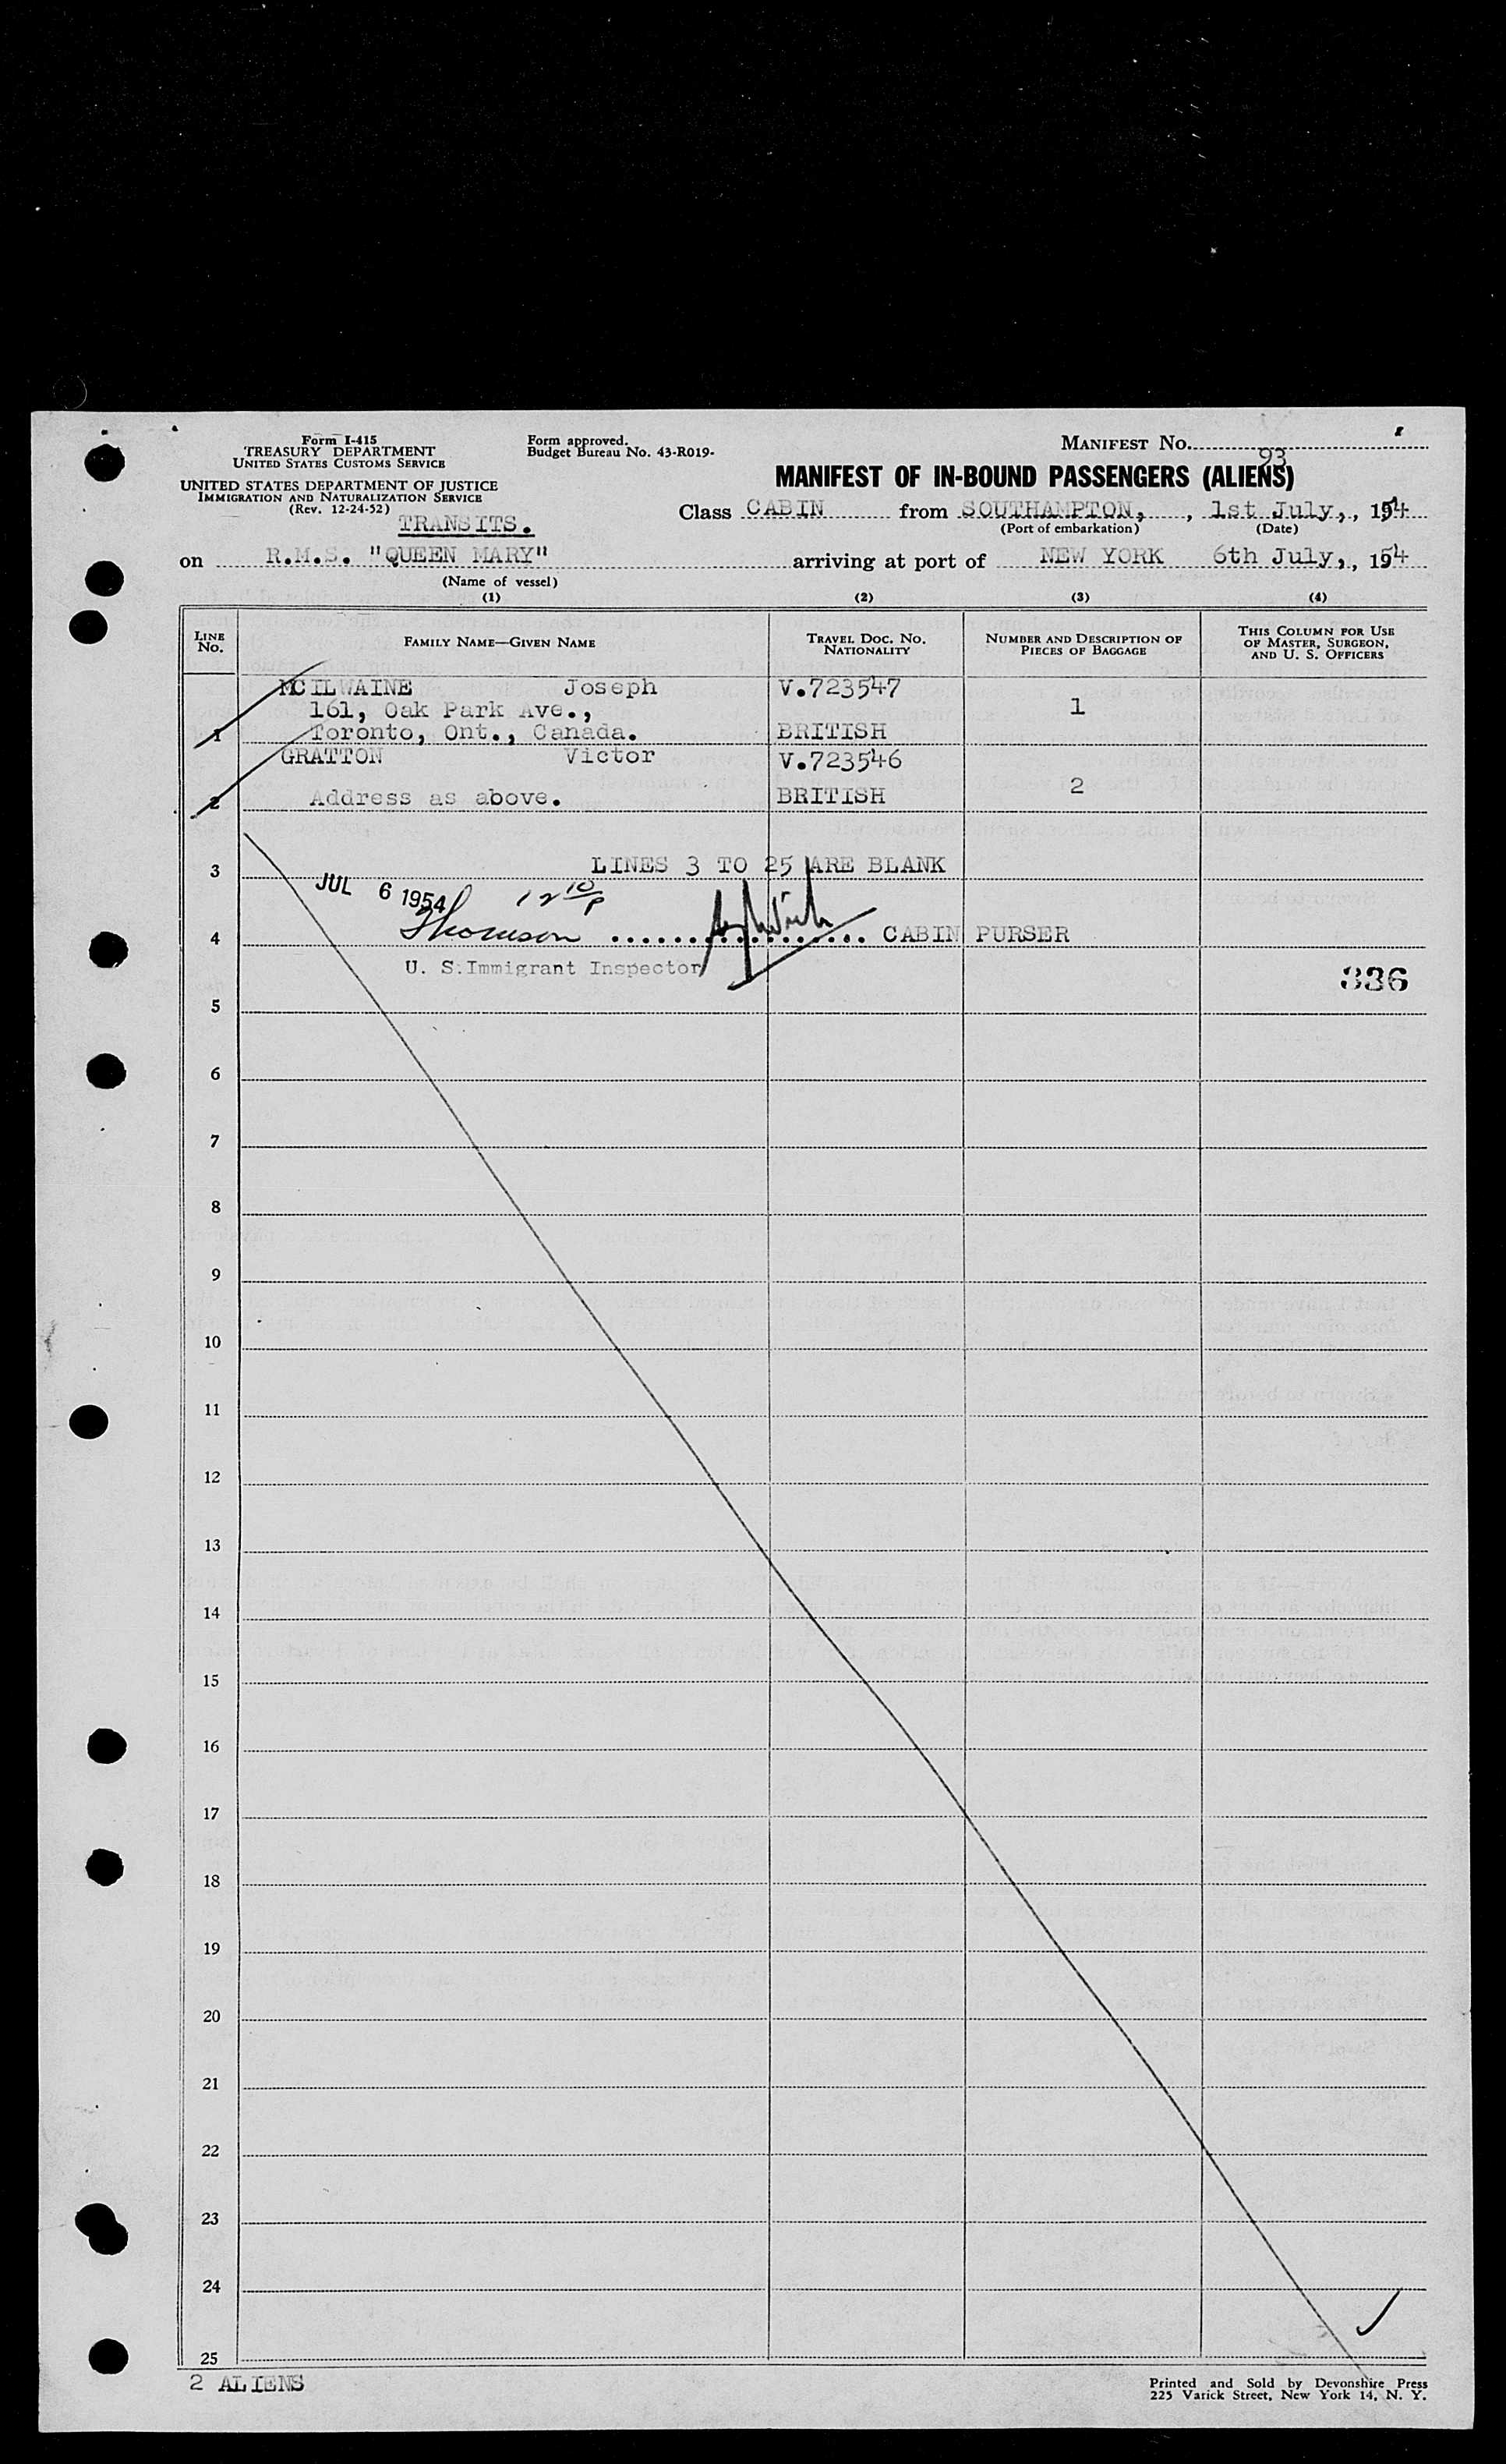 Form I-415
TREASURY DEPARTMENT
UNITED STATES CUSTOMS SERVICE
UNITED STATES DEPARTMENT OF JUSTICE
IMMIGRATION AND NATURALIZATION SERVICE
(Rev. 12-24-52)
TRANSITS.
Form approved.
Budget Bureau No. 43-R019-
MANIFEST No.
93
MANIFEST OF IN-BOUND PASSENGERS (ALIENS)
Class CABIN from SOUTHAMPTON, , 1st July, , 1954
(Port of embarkation) (Date)
on R.M.S. "QUEEN MARY" arriving at port of NEW YORK 6th July, , 1954
(Name of vessel)
(1) (2) (3) (4)
LINE No. FAMILY NAME—GIVEN NAME TRAVEL DOC. NO. NATIONALITY NUMBER AND DESCRIPTION OF PIECES OF BAGGAGE THIS COLUMN FOR USE OF MASTER, SURGEON, AND U. S. OFFICERS
MCILWAINE Joseph V.723547
161, Oak Park Ave., 1
1 Toronto, Ont., Canada. BRITISH
GRATTON Victor V.723546
2 Address as above. BRITISH 2
3 LINES 3 TO 25 ARE BLANK
JUL 6 1954 12 10/P
4 Thomson .................. CABIN PURSER
U. S. Immigrant Inspector
336
5
6
7
8
9
10
11
12
13
14
15
16
17
18
19
20
21
22
23
24
25
2 ALIENS
Printed and Sold by Devonshire Press
225 Varick Street, New York 14, N. Y.